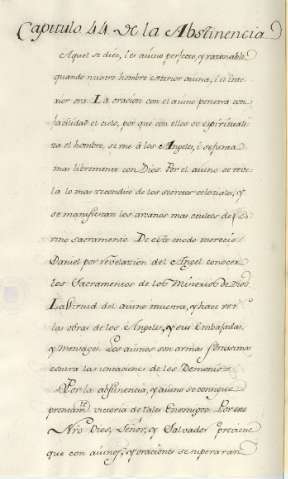 Capitulo 44. De la Abstinencia
Aquel se dice, i es aiuno perfecto, y razonable
quando nuestro hombre exterior aiuna, i el inte-
rior ora. La oracion con el aiuno penetra con
facilidad el cielo, por que con ellos se espirituali-
za el hombre, se une à los Angeles, i se forma
mas libremente con Dios. Por el aiuno se reve-
la lo mas recondito de los secretos celestiales, y
se manifiestan los arcanos mas ocultos del
vino sacramento. De este modo merecio
Daniel por revelacion del Angel conocer
los Sacramentos de los Misterios de Dios.
La virtud del aiuno muestra, y hace ver
las obras de los Angeles, y sus Embajadas,
y Mensages. Los aiunos son armas fortissimas
contra las tentaciones de los Demonios.
Por la abstinencia, y aiuno se consigue
victoria de tales Enemigos. Por eso
Nro Dios, Señor, y Salvador previene
que con aiunos, y oraciones se superaran